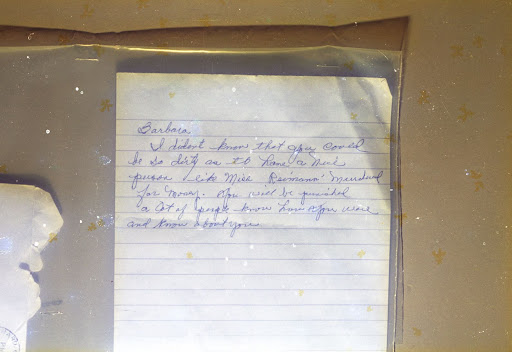 Barbara
I didn't know that you could
be so dirty as to have a nice
person like Miss murdered
for money. You will be punished
a lot of people know how you were
and know about you.